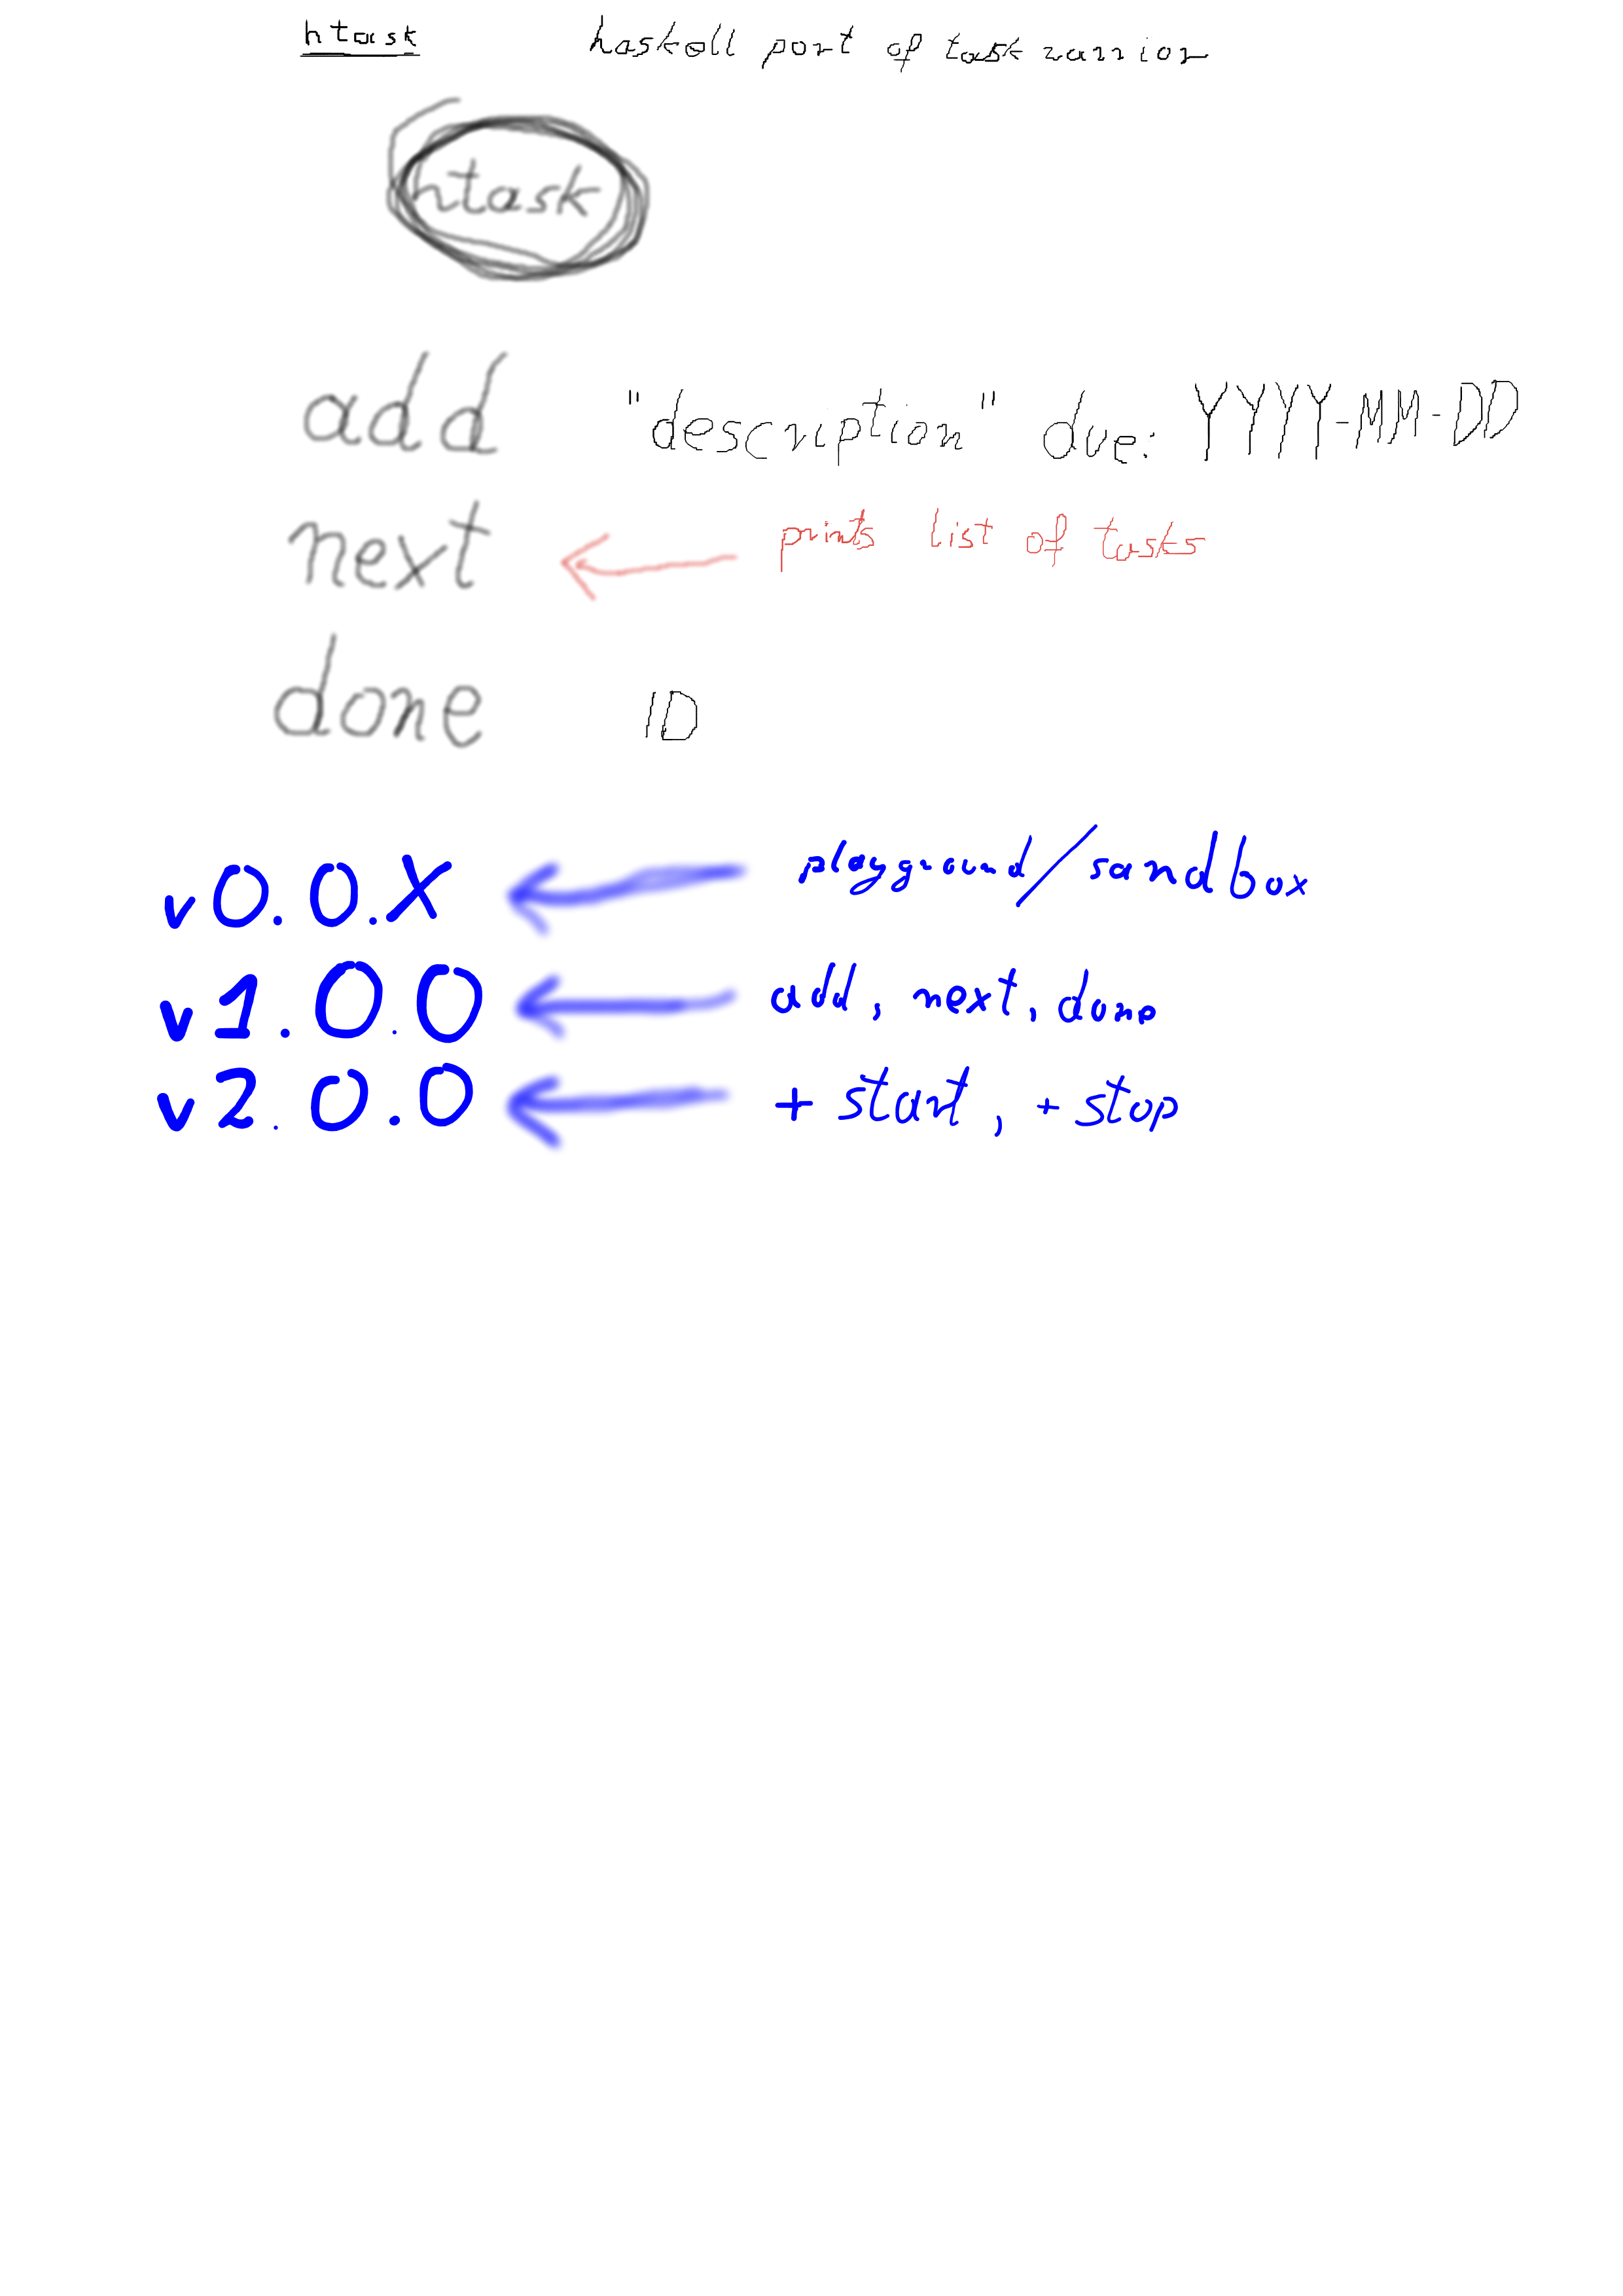 htask haskell port of taskwarrior
htask
add "description" due: YYYY-MM-DD
next prints list of tasks
done ID
v0.0.X playground/sandbox
v1.0.0 add, next, done
v2.0.0 + start, + stop